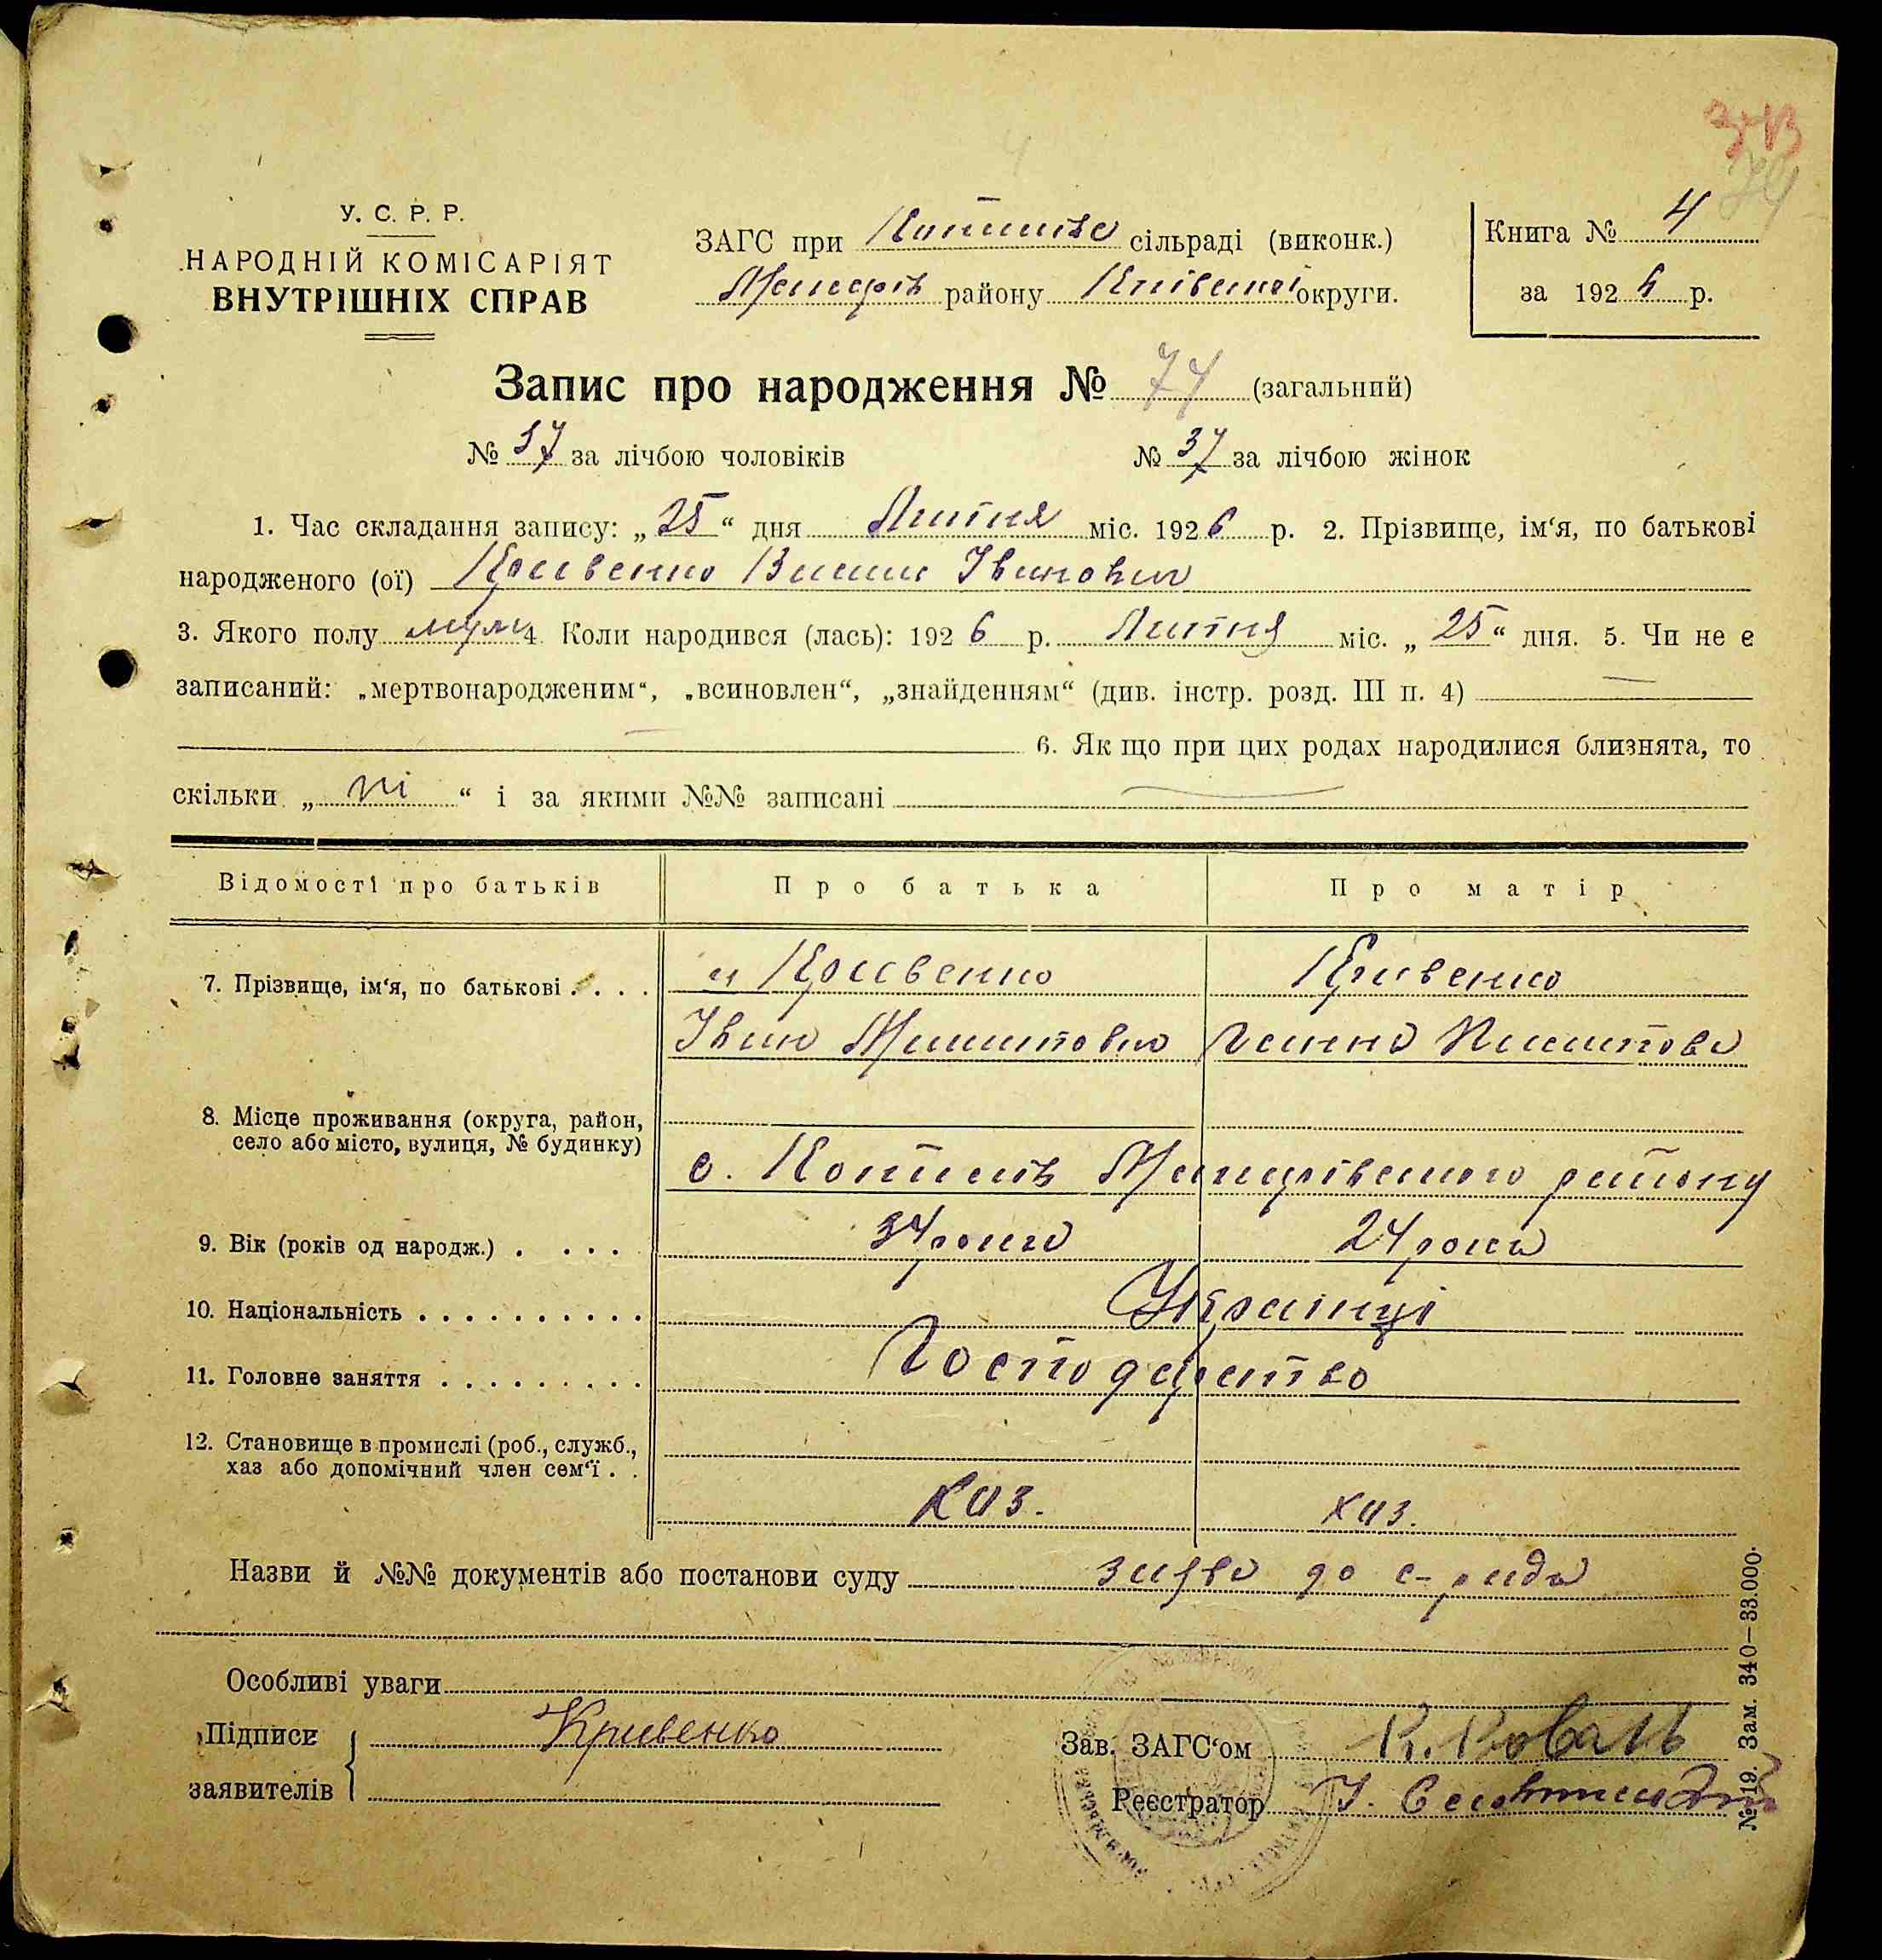 З-В
74
У. С. Р. Р.
НАРОДНІЙ КОМІСАРІЯТ
ВНУТРІШНІХ СПРАВ
ЗАГС при Копилів сільраді (виконк.)
Макарів району Київської округи.
Книга № 4
за 1926 р.
Запис про народження № 74 (загальний)
№ 37 за лічбою чоловіків № 37 за лічбою жінок
1. Час складання запису: „25“ дня Липня міс. 1926 р. 2. Прізвище, ім‘я, по батькові
народженого (ої) Кривенко Іванович
3. Якого полу муж 4. Коли народився (лась): 1926 р. Липня міс. „25“ дня. 5. Чи не є
записаний: „мертвонародженим“, „всиновлен“, „знайденням“ (див. інстр. розд. III п. 4) —
— 6. Як що при цих родах народилися близнята, то
скільки „ні“ і за якими №№ записані —
Відомості про батьків Про батька Про матір
7. Прізвище, ім‘я, по батькові . . . . Кривенко Кривенко
Іван Ганна
8. Місце проживання (округа, район,
село або місто, вулиця, № будинку)
с. Копилів Макарівського району
9. Вік (років од народж.) . . . . 34 роки 24 роки
10. Національність . . . . . . . . . . Українці
11. Головне заняття . . . . . . . . . Господарство
12. Становище в промислі (роб., служб.,
хаз або допомічний член сем‘ї . .
хаз. хаз.
Назви й №№ документів або постанови суду заява до с-ради
Особливі уваги
Підписи Кривенко
заявителів
Зав. ЗАГС‘ом К. Коваль
Реєстратор
№ 19. Зам. 340—33.000.